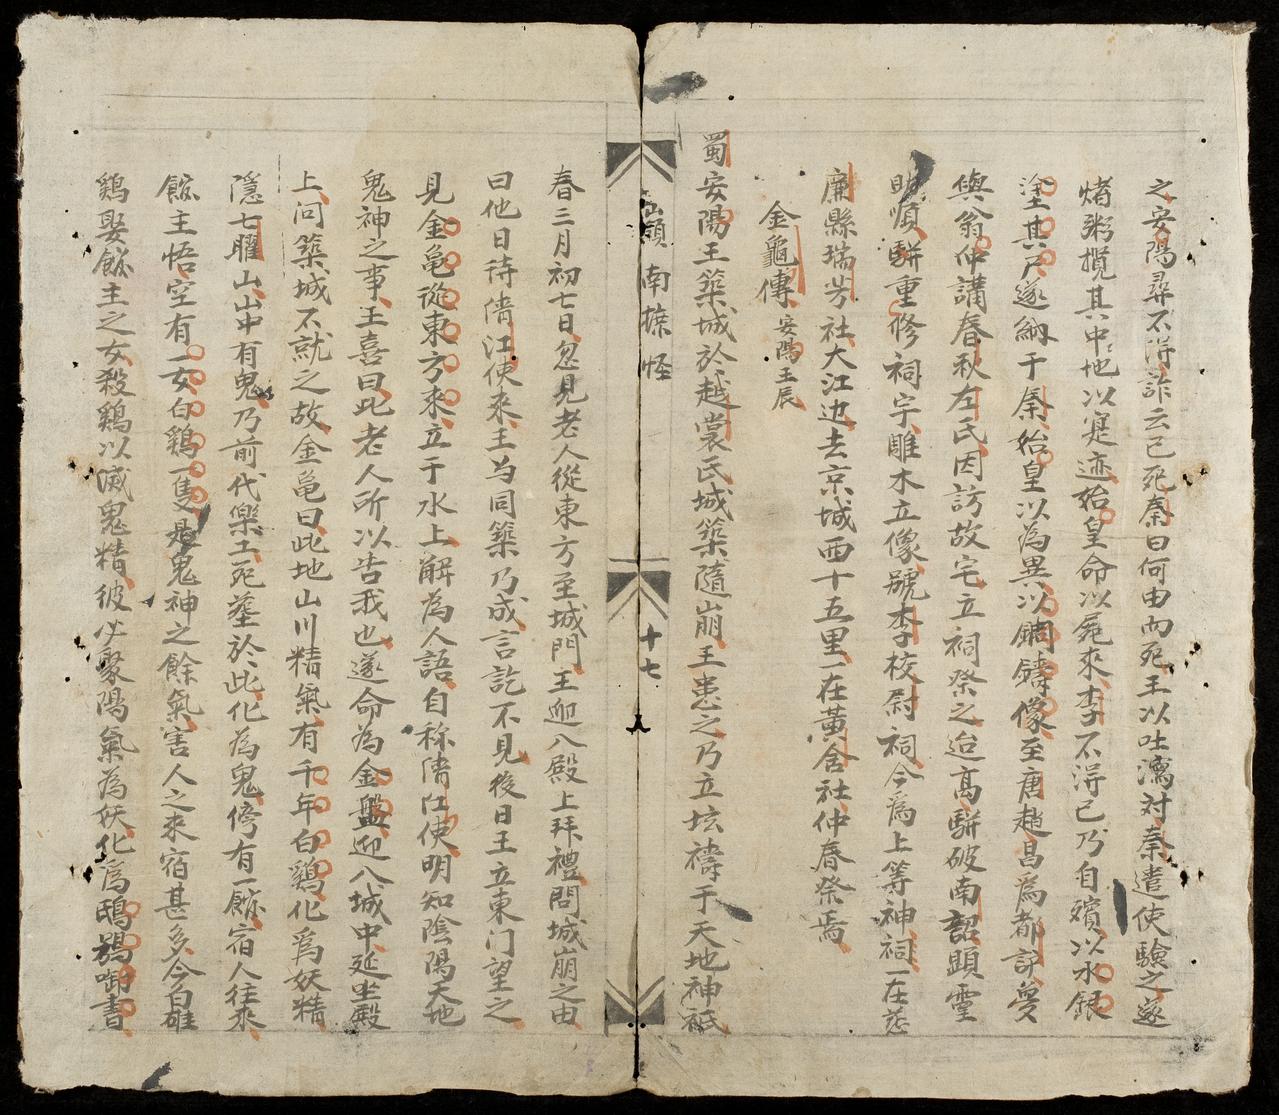 之安陽尋不淂詐云已死秦曰何由而死王以吐瀉对秦遣使驗之遂
煑粥攬其中地以寔迹始皇命以屍來李不淂已乃自殯以水銀
塗其尸遂納于秦始皇以為異以銅鑄像至唐趙昌爲都護夢
與翁仲講春秋左氏因訪故宅立祠祭之迨高駢破南詔顕灵
助順駢重修祠宇雕木立像號李校尉祠今爲上等神祠一在慈
廉縣瑞芳社大江边去京城西十五里一在黄舍社仲春祭焉
金龜傳 安陽王辰
蜀安陽王築城於越裳氏城築隨崩王患之乃立坛禱于天地神祇
嶺南摭怪 十七
春三月初七日忽見老人從東方至城門王迎入殿上拜禮問城崩之由
曰他日待清江使来王与同築乃成言訖不見後日王立東门望之
見金龟從東方来立于水上解為人語自称清江使明知陰陽天地
鬼神之事王喜曰此老人所以告我也遂命為金盤迎入城中延坐殿
上问築城不就之故金龟曰此地山川精氣有千年白鷄化爲妖精
隱七曜山山中有鬼乃前代樂工死塟於此化為鬼傍有一館宿人往来
館主悟空有一女白鷄一隻是鬼神之餘氣害人之来宿甚多今白雄
鷄娶館主之女殺鷄以滅鬼精彼必聚陽氣為妖化爲鴟鴞啣書